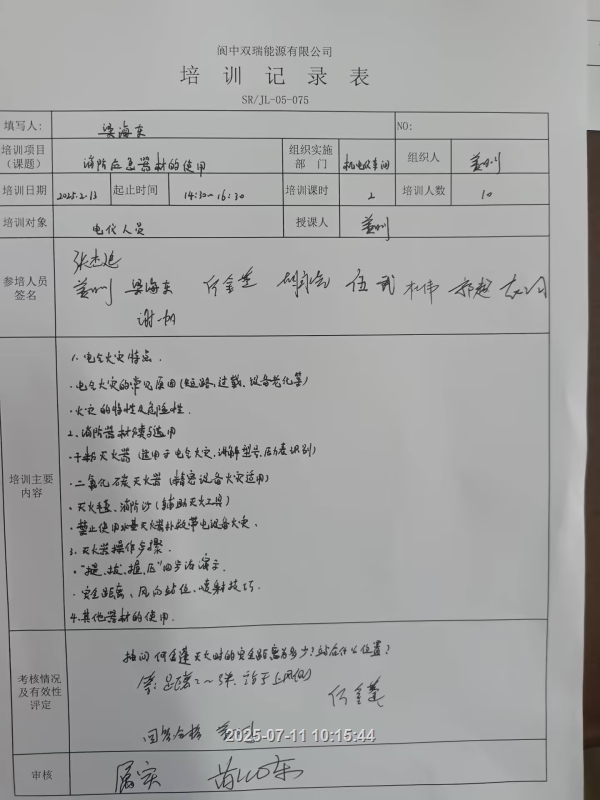 阆中双瑞能源有限公司
培 训 记 录 表
SR/JL-05-075
填写人: 梁海东 NO:
培训项目（课题） 消防应急器材的使用 组织实施部门 机电仪车间 组织人 姜川
培训日期 2025.2.13 起止时间 14:30~16:30 培训课时 2 培训人数 10
培训对象 电仪人员 授课人 姜川
参培人员签名
姜川 梁海东 何金莲 伍武 杜伟 郭超
谢一帆
培训主要内容
1. 电气火灾特点.
·电气火灾的常见原因(短路、过载、设备老化等)
·火灾的特性及危险性.
2. 消防器材种类与适用
·干粉灭火器（适用于电气火灾、讲解型号、压力表识别)
·二氧化碳灭火器（精密设备火灾适用)
·灭火毯、消防沙（辅助灭火工具)
·禁止使用水基灭火器扑救带电设备火灾.
3. 灭火器操作步骤.
·"提、拔、握、压"四步法演示.
·安全距离、风向站位、喷射技巧.
4. 其他器材的使用.
考核情况及有效性评定
抽问何金莲灭火时的安全距离为多少?站在什么位置?
答:距离2~3米,站于上风侧
何金莲
回答合格 姜川
2025-07-11 10:15:44
审核 属实